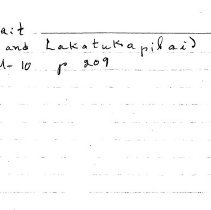 ait
and Lakatukapilai)
M-10 p 209